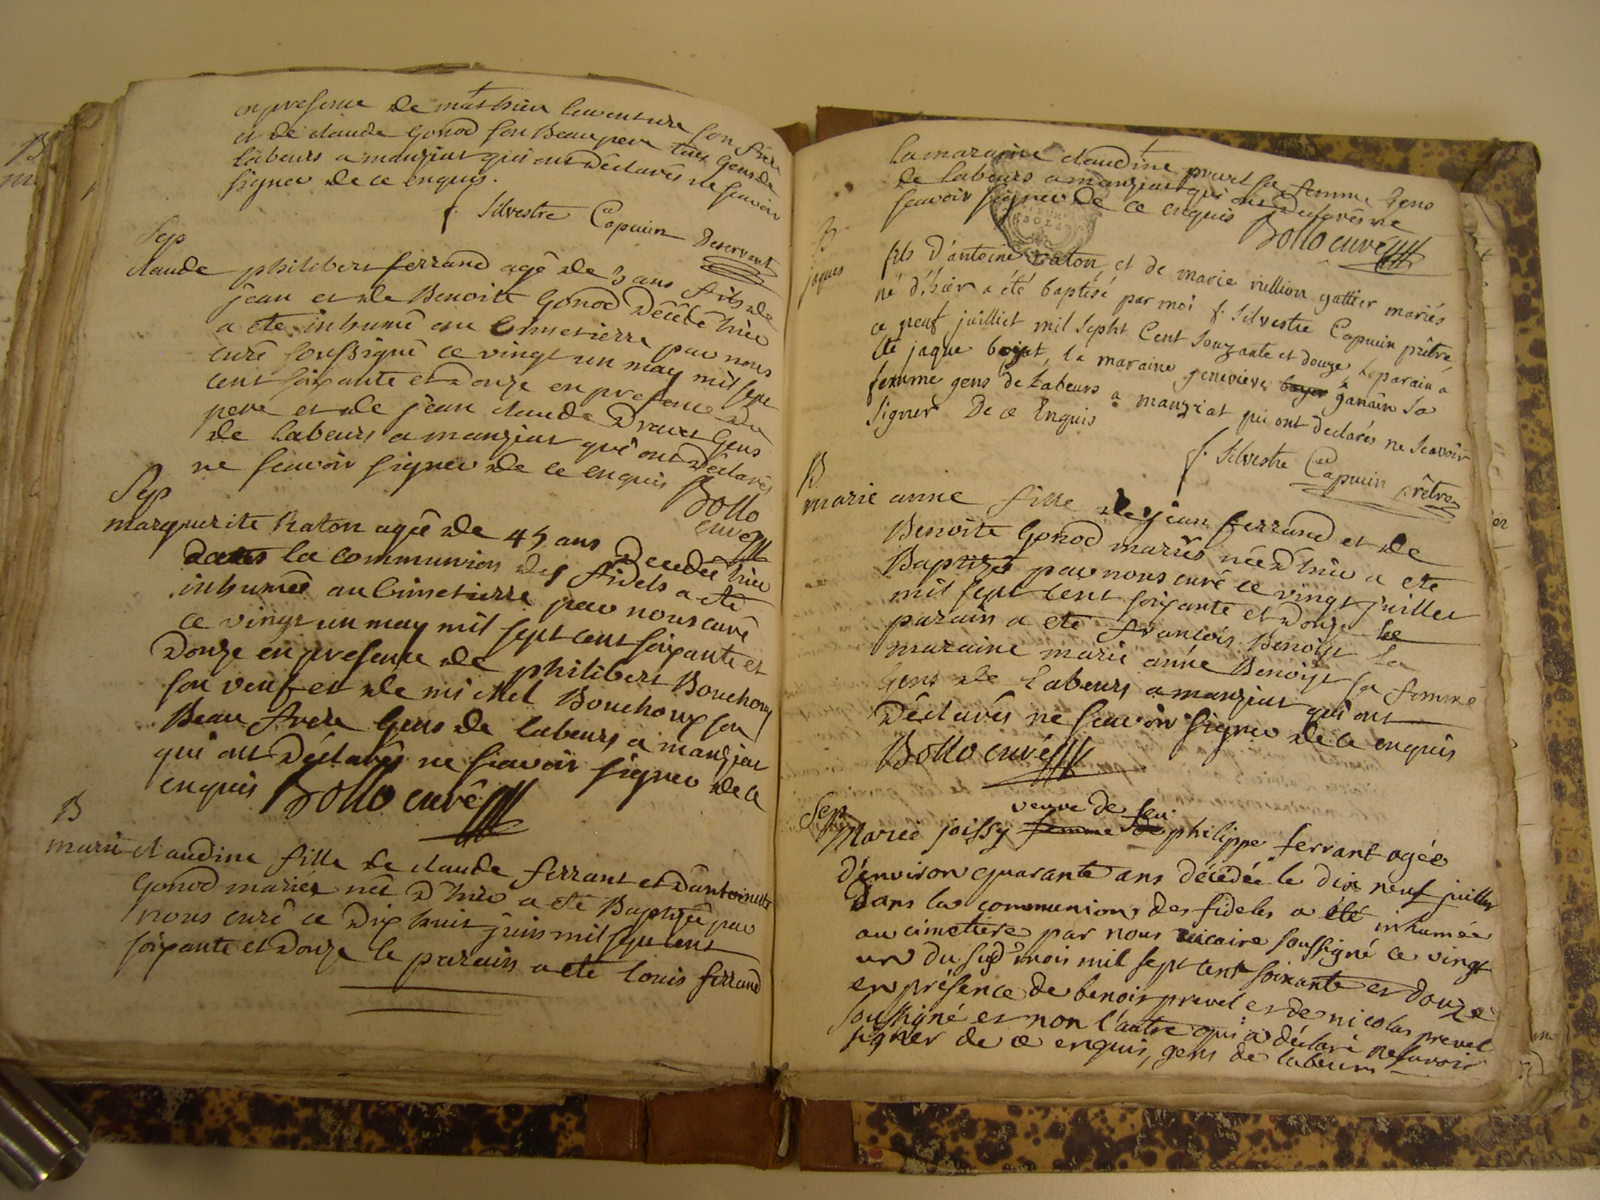 en presence de mathieu laventure son frere
et de claude gonod son Beaupere tous gens de
labeurs a manziat qui ont Déclarés ne scavoir
signer de ce enquis.
f. Silvestre Capucin Deservant
Sep
claude philibert ferrand agé de 3 ans fils de
jean et de Benoite Gonod Décédé hier
a ete inhumé au cimetierre par nous
curé soussigné ce vingt un may mil sept
cent soixante et Douze en presence du
pere et de jean claude Dravet Gens
de labeurs a manziat qui ont déclarés
ne scavoir signer de ce enquis Bollo
curé
Sep
marguerite Raton agée de 45 ans Decedée hier
dans la communion des fidels a eté
inhumée au Cimetierre par nous curé
ce vingt un may mil sept cent soixante et
Douze en presence de philibert Bouchoux
son veuf et de michel Bouchoux son
Beau frere Gens de labeurs a manziat
qui ont Déclarés ne scavoir signer de ce
enquis Bollo curé
B
marie claudine fille de claude ferrant et d'antoinette
Gonod mariés née D'hier a eté Baptizé par
nous curé ce Dix huit juin mil sept cent
soixante et Douze le parain a eté louis ferrand
la maraine claudine pravet sa femme Gens
de labeurs a manziat qui ont
scavoir signer de ce enquis Bollo curé
B
jaques fils d'antoine raton et de marie rullion gattier mariés
né d'hier a été baptisé par moi f. Silvestre Capucin prêtre
ce neuf juilliet mil Sept Cent Souzante et douze le parain a
été jaque boyat, la maraine genevieve boyat ganain Sa
femme gens de Labeurs a manziat qui ont declarés ne Scavoir
Signer De ce Enquis
f. Silvestre Capucin prêtre
B
marie anne fille de jean ferrand et de
Benoite Gonod mariés née D'hier a eté
Baptizée par nous curé ce vingt juillet
mil sept cent soixante et Douze le
parain a eté francois Benoist la
maraine marie anne Benoist sa femme
Gens de Labeurs a manziat qui ont
Déclarés ne scavoir signer de ce enquis
Bollo curé
Sep
veuve de feu
Marie joissy femme de philippe ferrant agée
d'environ quarante ans décédée le dix neuf juillet
dans la communion des fideles a été inhumée
au cimetiere par nous vicaire soussigné ce vingt
un du sud. mois mil sept cent soixante et douze
en présence de benoit prevel et de nicolas prevel
soussigné et non l'autre qui a déclaré ne savoir
signer de ce enquis, gens de labeurs